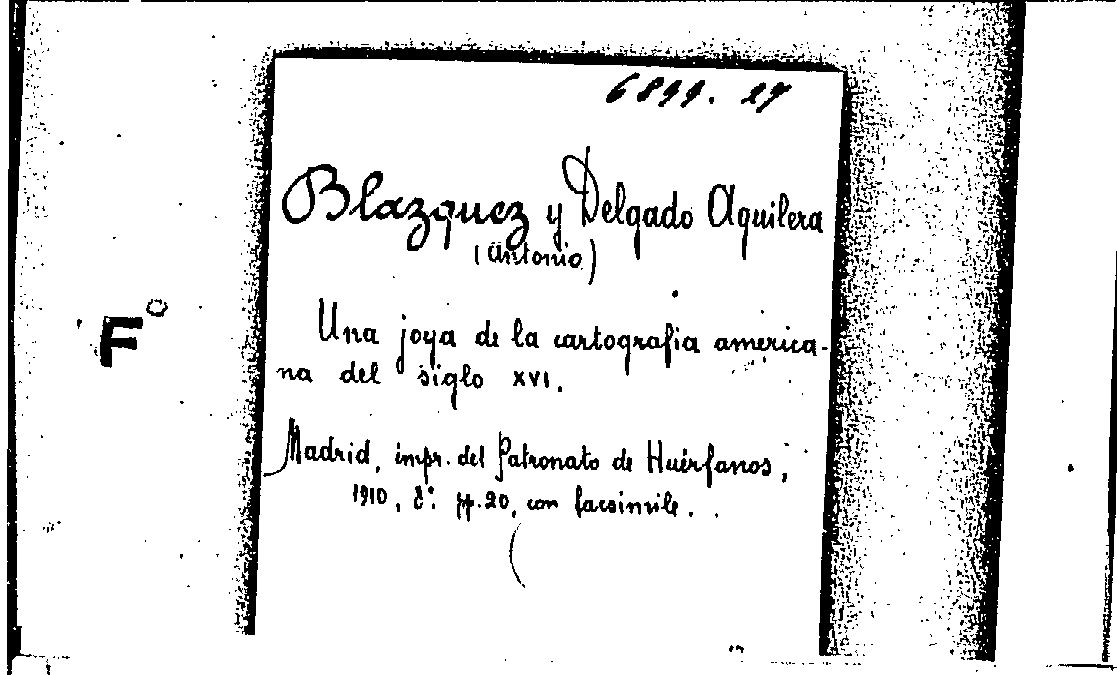 6899. 27
Blazquez y Delgado Aguilera
(Antonio)
F°
Una joya de la cartografia america-
na del siglo XVI.
Madrid, impr. del Patronato de Huérfanos,
1910, 8°. pp. 20, con facsimile.